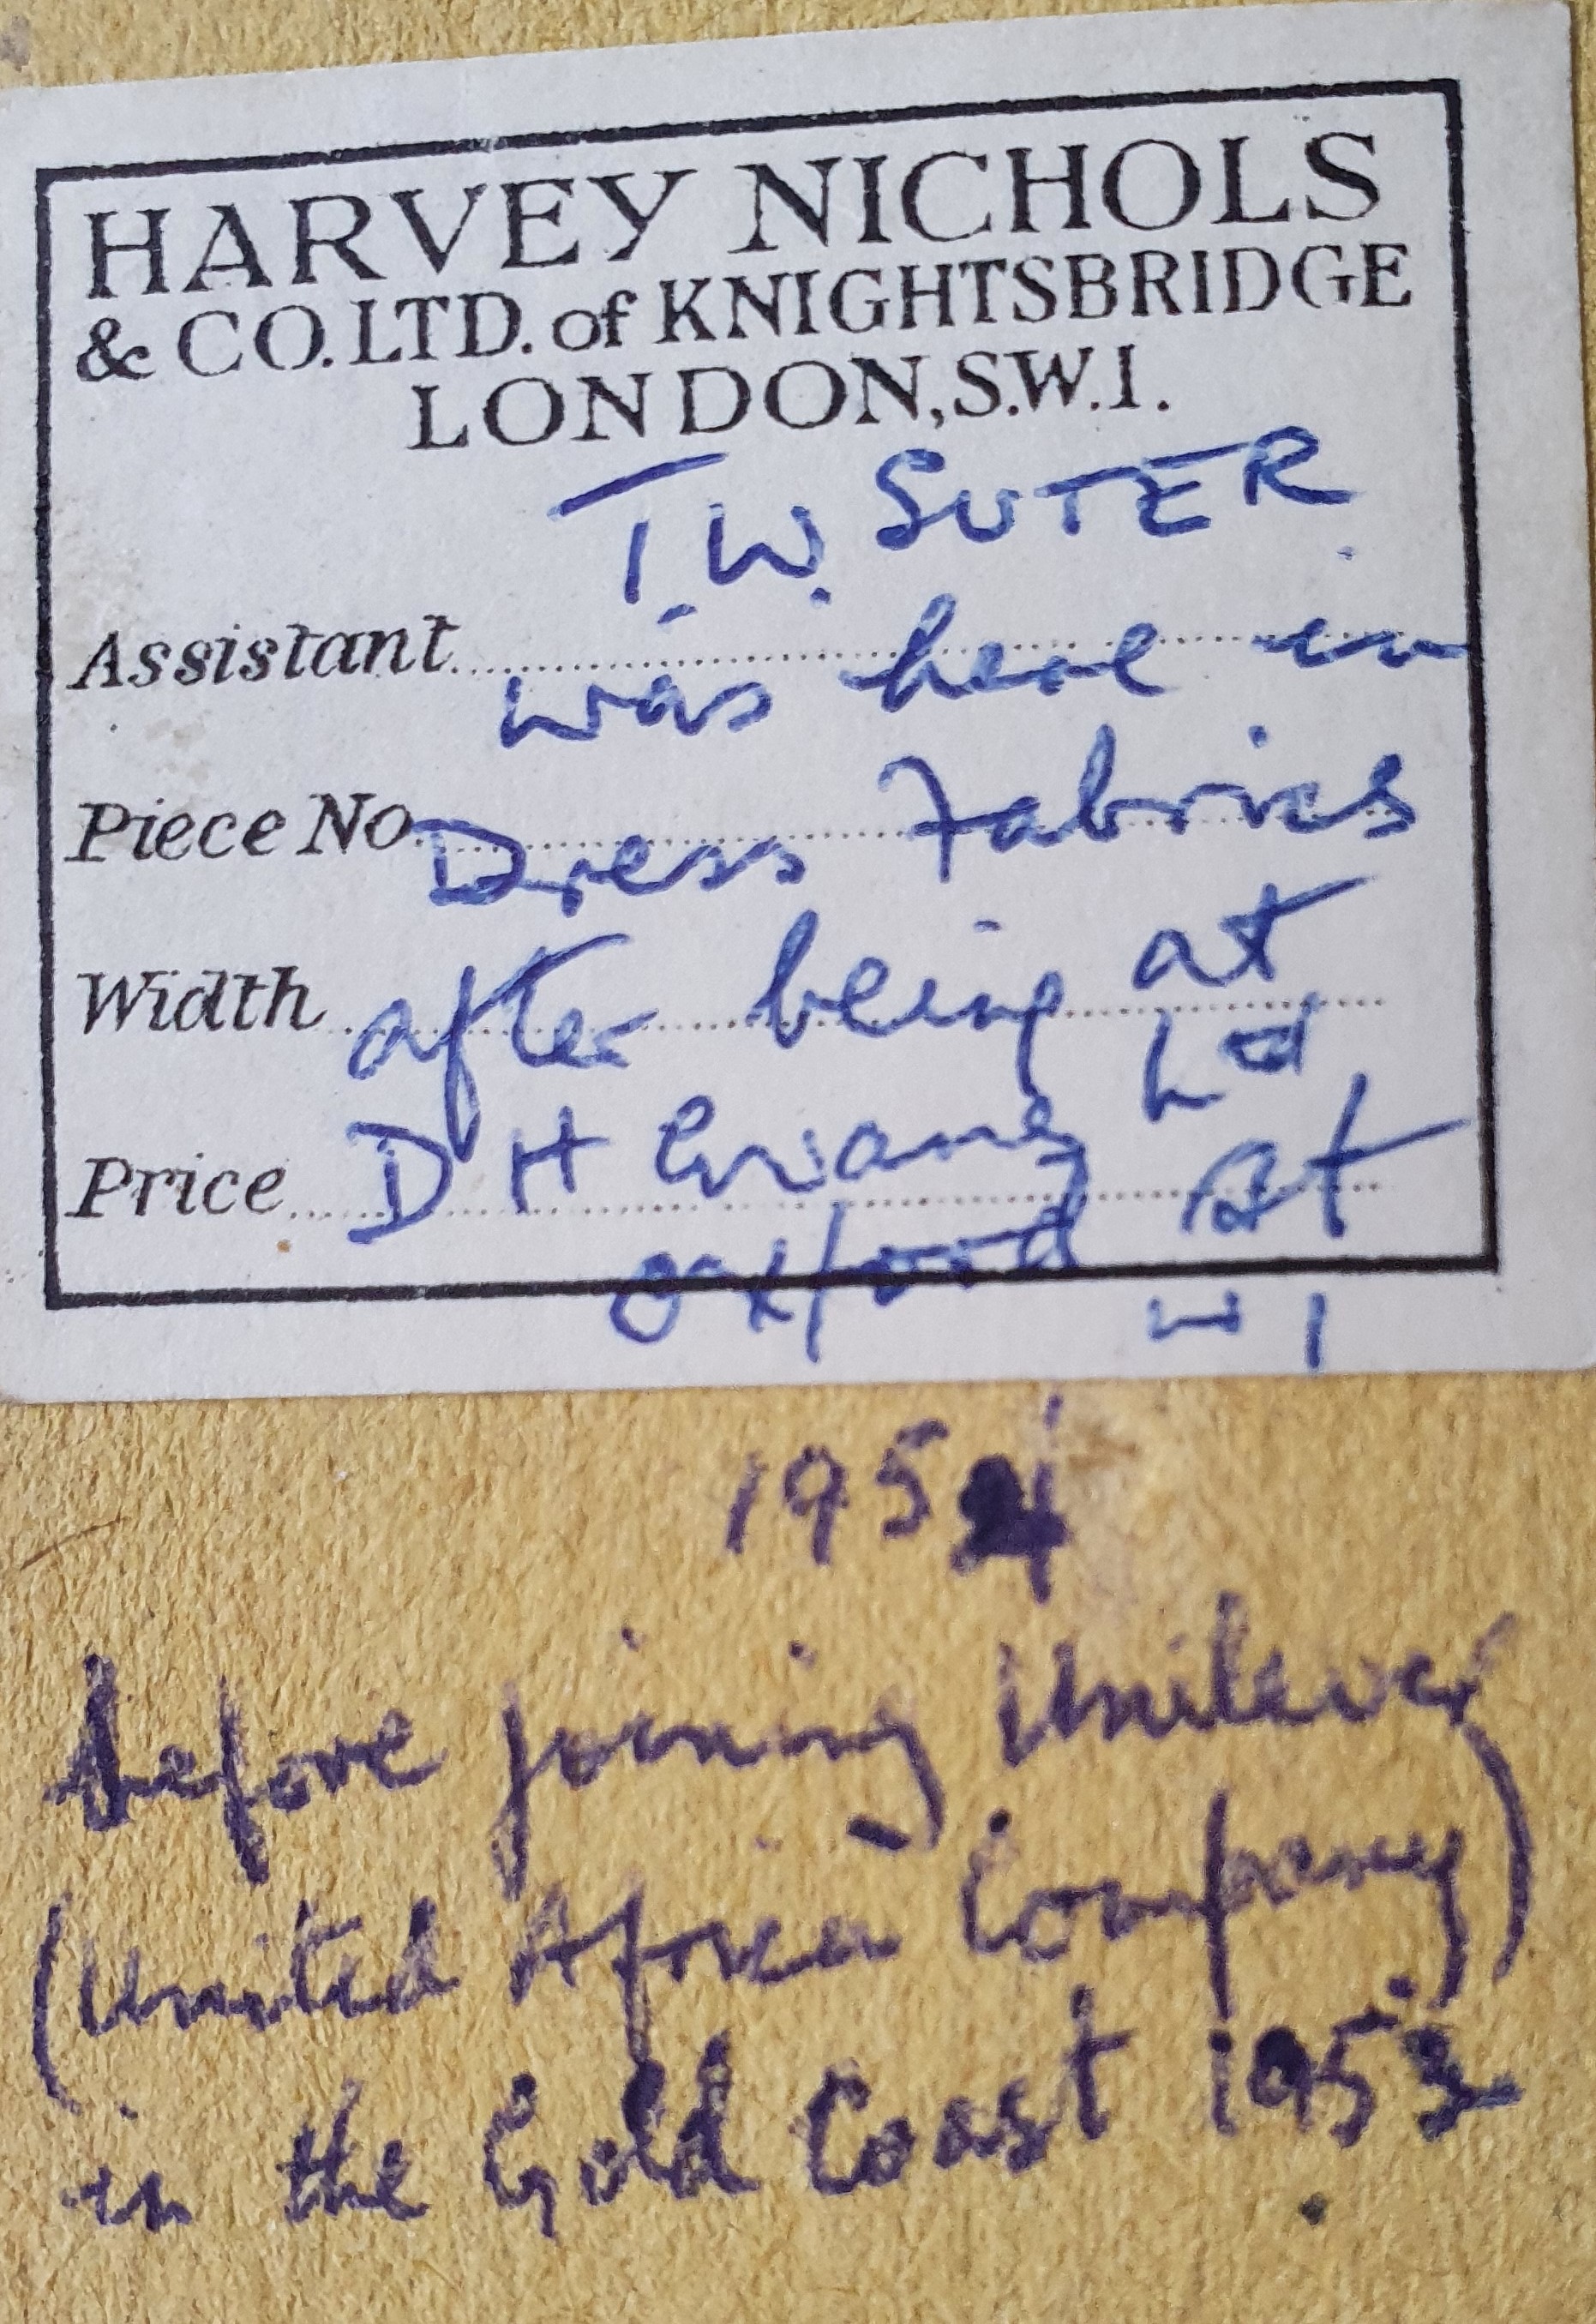 HARVEY NICHOLS
& CO. LTD. of KNIGHTSBRIDGE
LONDON, S.W.1.
T.W. SUTER
Assistant was here in
Piece No Dress Fabrics
Width after being at
Price D H Evans Ltd
Oxford St
W 1
195
before joining Unilever
(United Africa Company)
in the Gold Coast 195